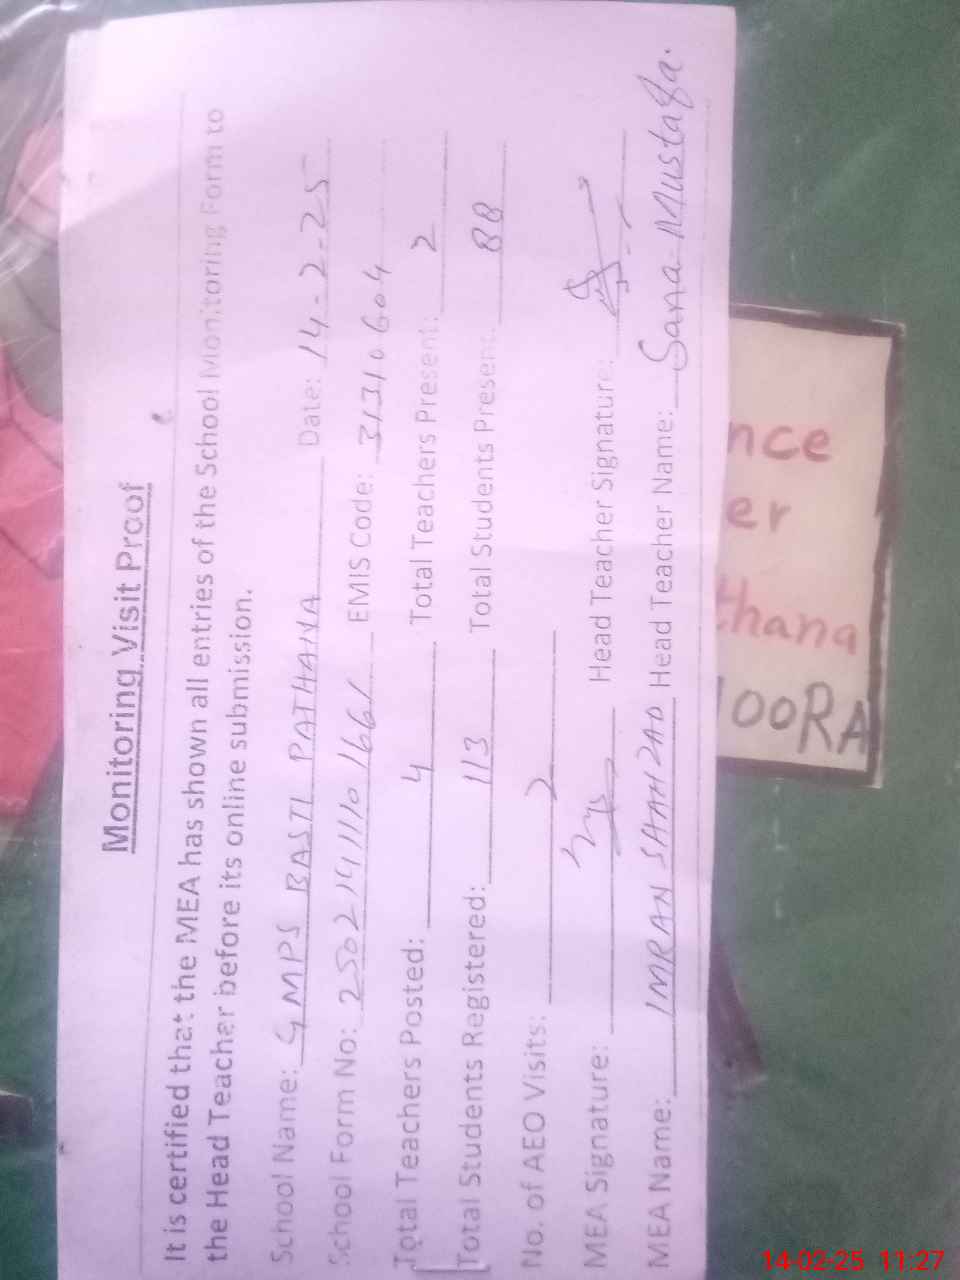 Monitoring Visit Proof
It is certified that the MEA has shown all entries of the School Monitoring Form to
the Head Teacher before its online submission.
School Name: GMPS BASTI PATHANA Date: 14-2-25
School Form No: 25021411101661 EMIS Code: 31310604
Total Teachers Posted: 4 Total Teachers Present: 2
Total Students Registered: 113 Total Students Present: 88
No. of AEO Visits: 2
MEA Signature: Head Teacher Signature:
MEA Name: IMRAN SHAHZAD Head Teacher Name: Sana Mustafa.
nce
er
thana
OORA
14-02-25 11:27